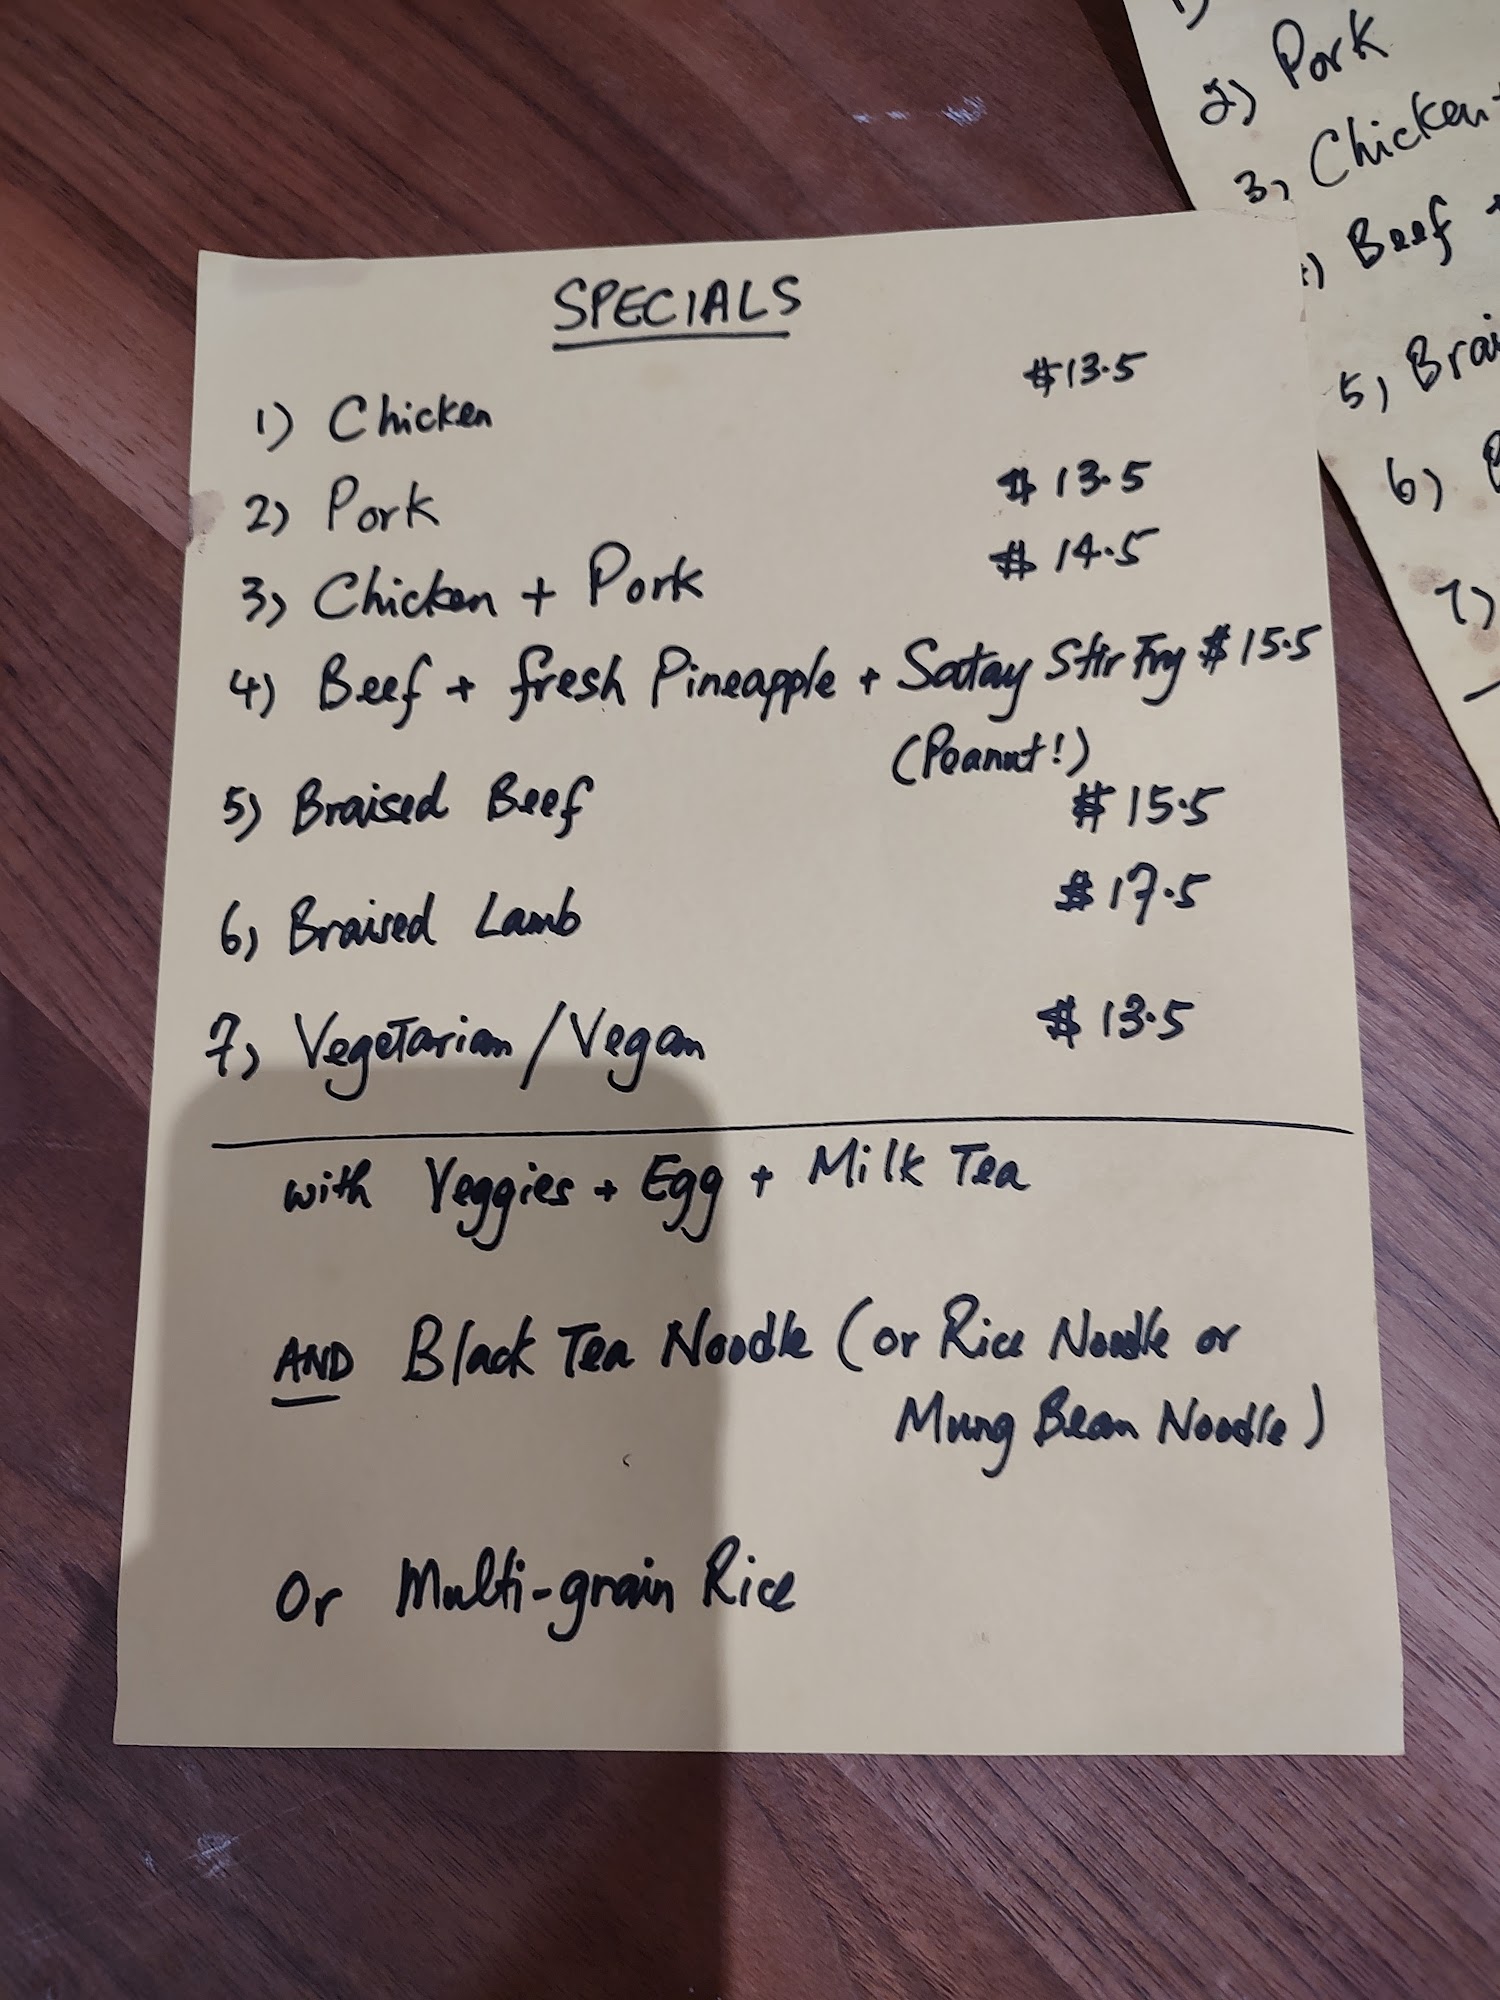 SPECIALS
1) Chicken $13.5
2) Pork $13.5
3) Chicken + Pork $14.5
4) Beef + fresh Pineapple + Satay Stir Fry $15.5
(Peanut!)
5) Braised Beef $15.5
6) Braised Lamb $17.5
7) Vegetarian/Vegan $13.5
with Veggies + Egg + Milk Tea
AND Black Tea Noodle (or Rice Noodle or
Mung Bean Noodle)
Or Multi-grain Rice
1)
2) Pork
3) Chicken +
4) Beef +
5) Brai
6)
7)